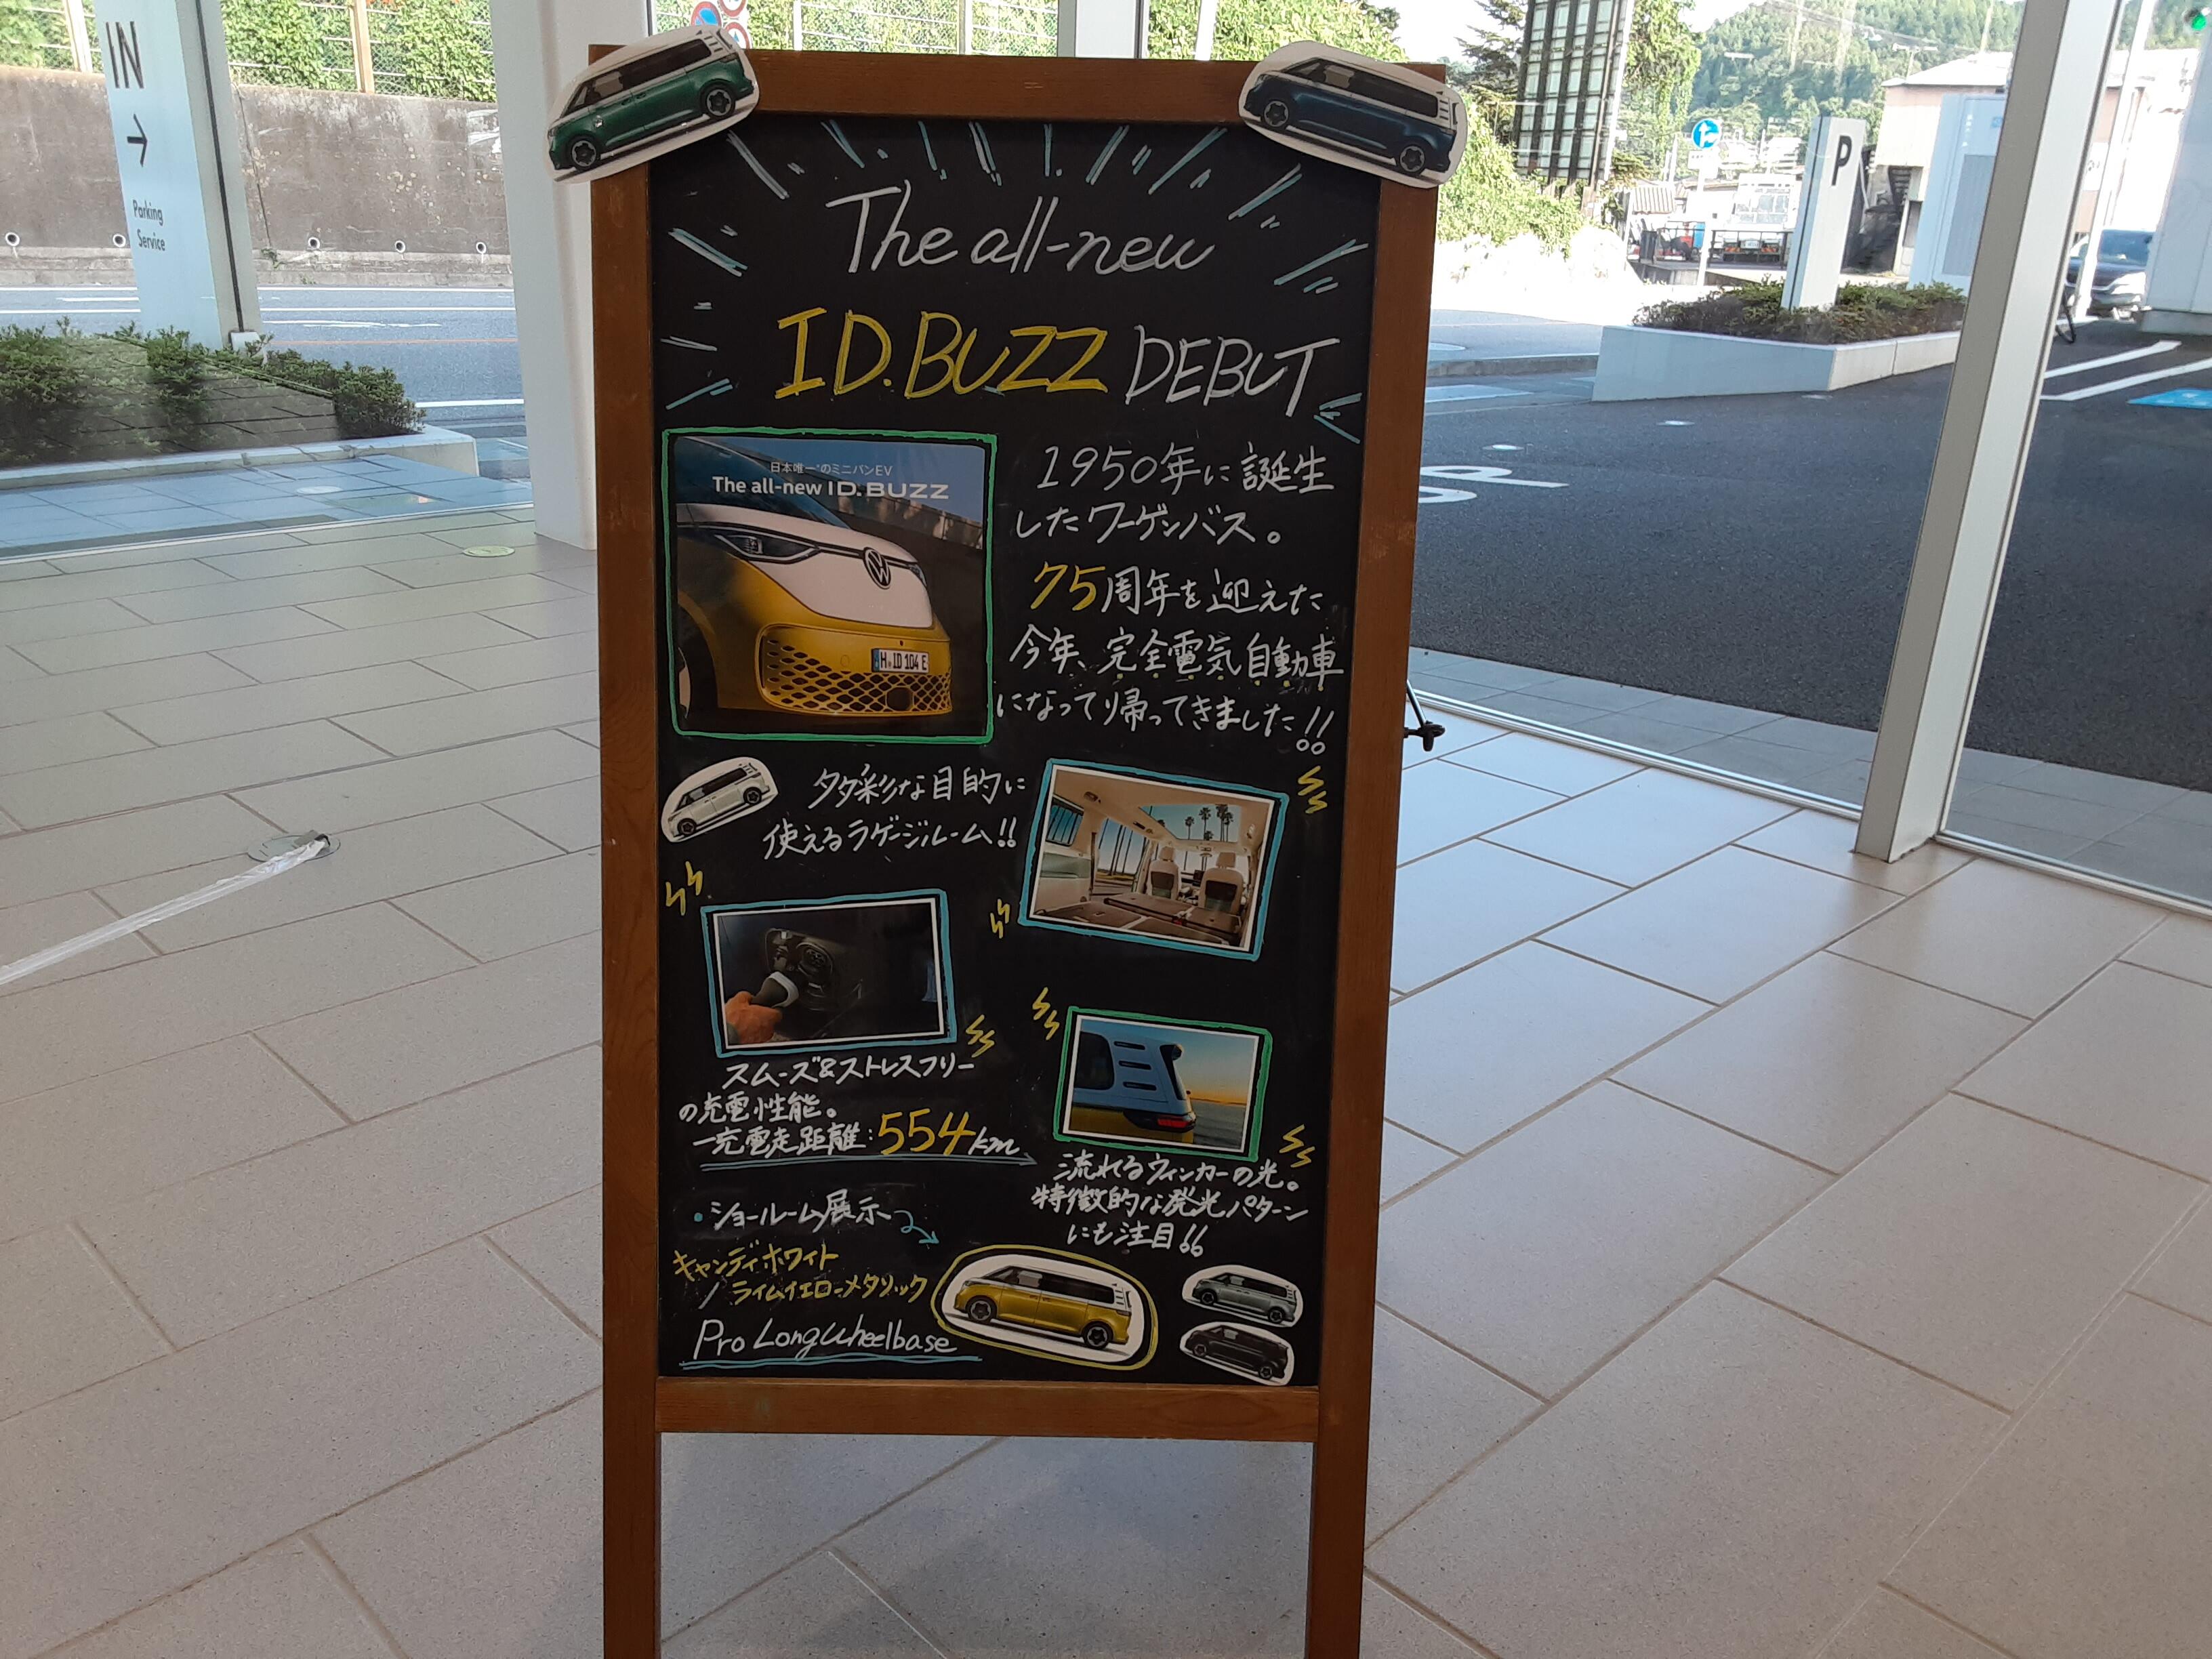 IN
→
Parking
Service
P
UP
The all-new
ID.BUZZ DEBUT
日本唯一*のミニバンEV
The all-new ID.BUZZ
H ID 104 E
1950年に誕生
したワーゲンバス。
75周年を迎えた
今年、完全電気自動車
になって帰ってきました!!
多彩な目的に
使えるラゲージルーム!!
スムーズ&ストレスフリー
の充電性能。
一充電走距離:554km
流れるウィンカーの光。
特徴的な発光パターン
にも注目!!
・ショールーム展示
キャンディホワイト
/ライムイエローメタリック
Pro LongWheelbase